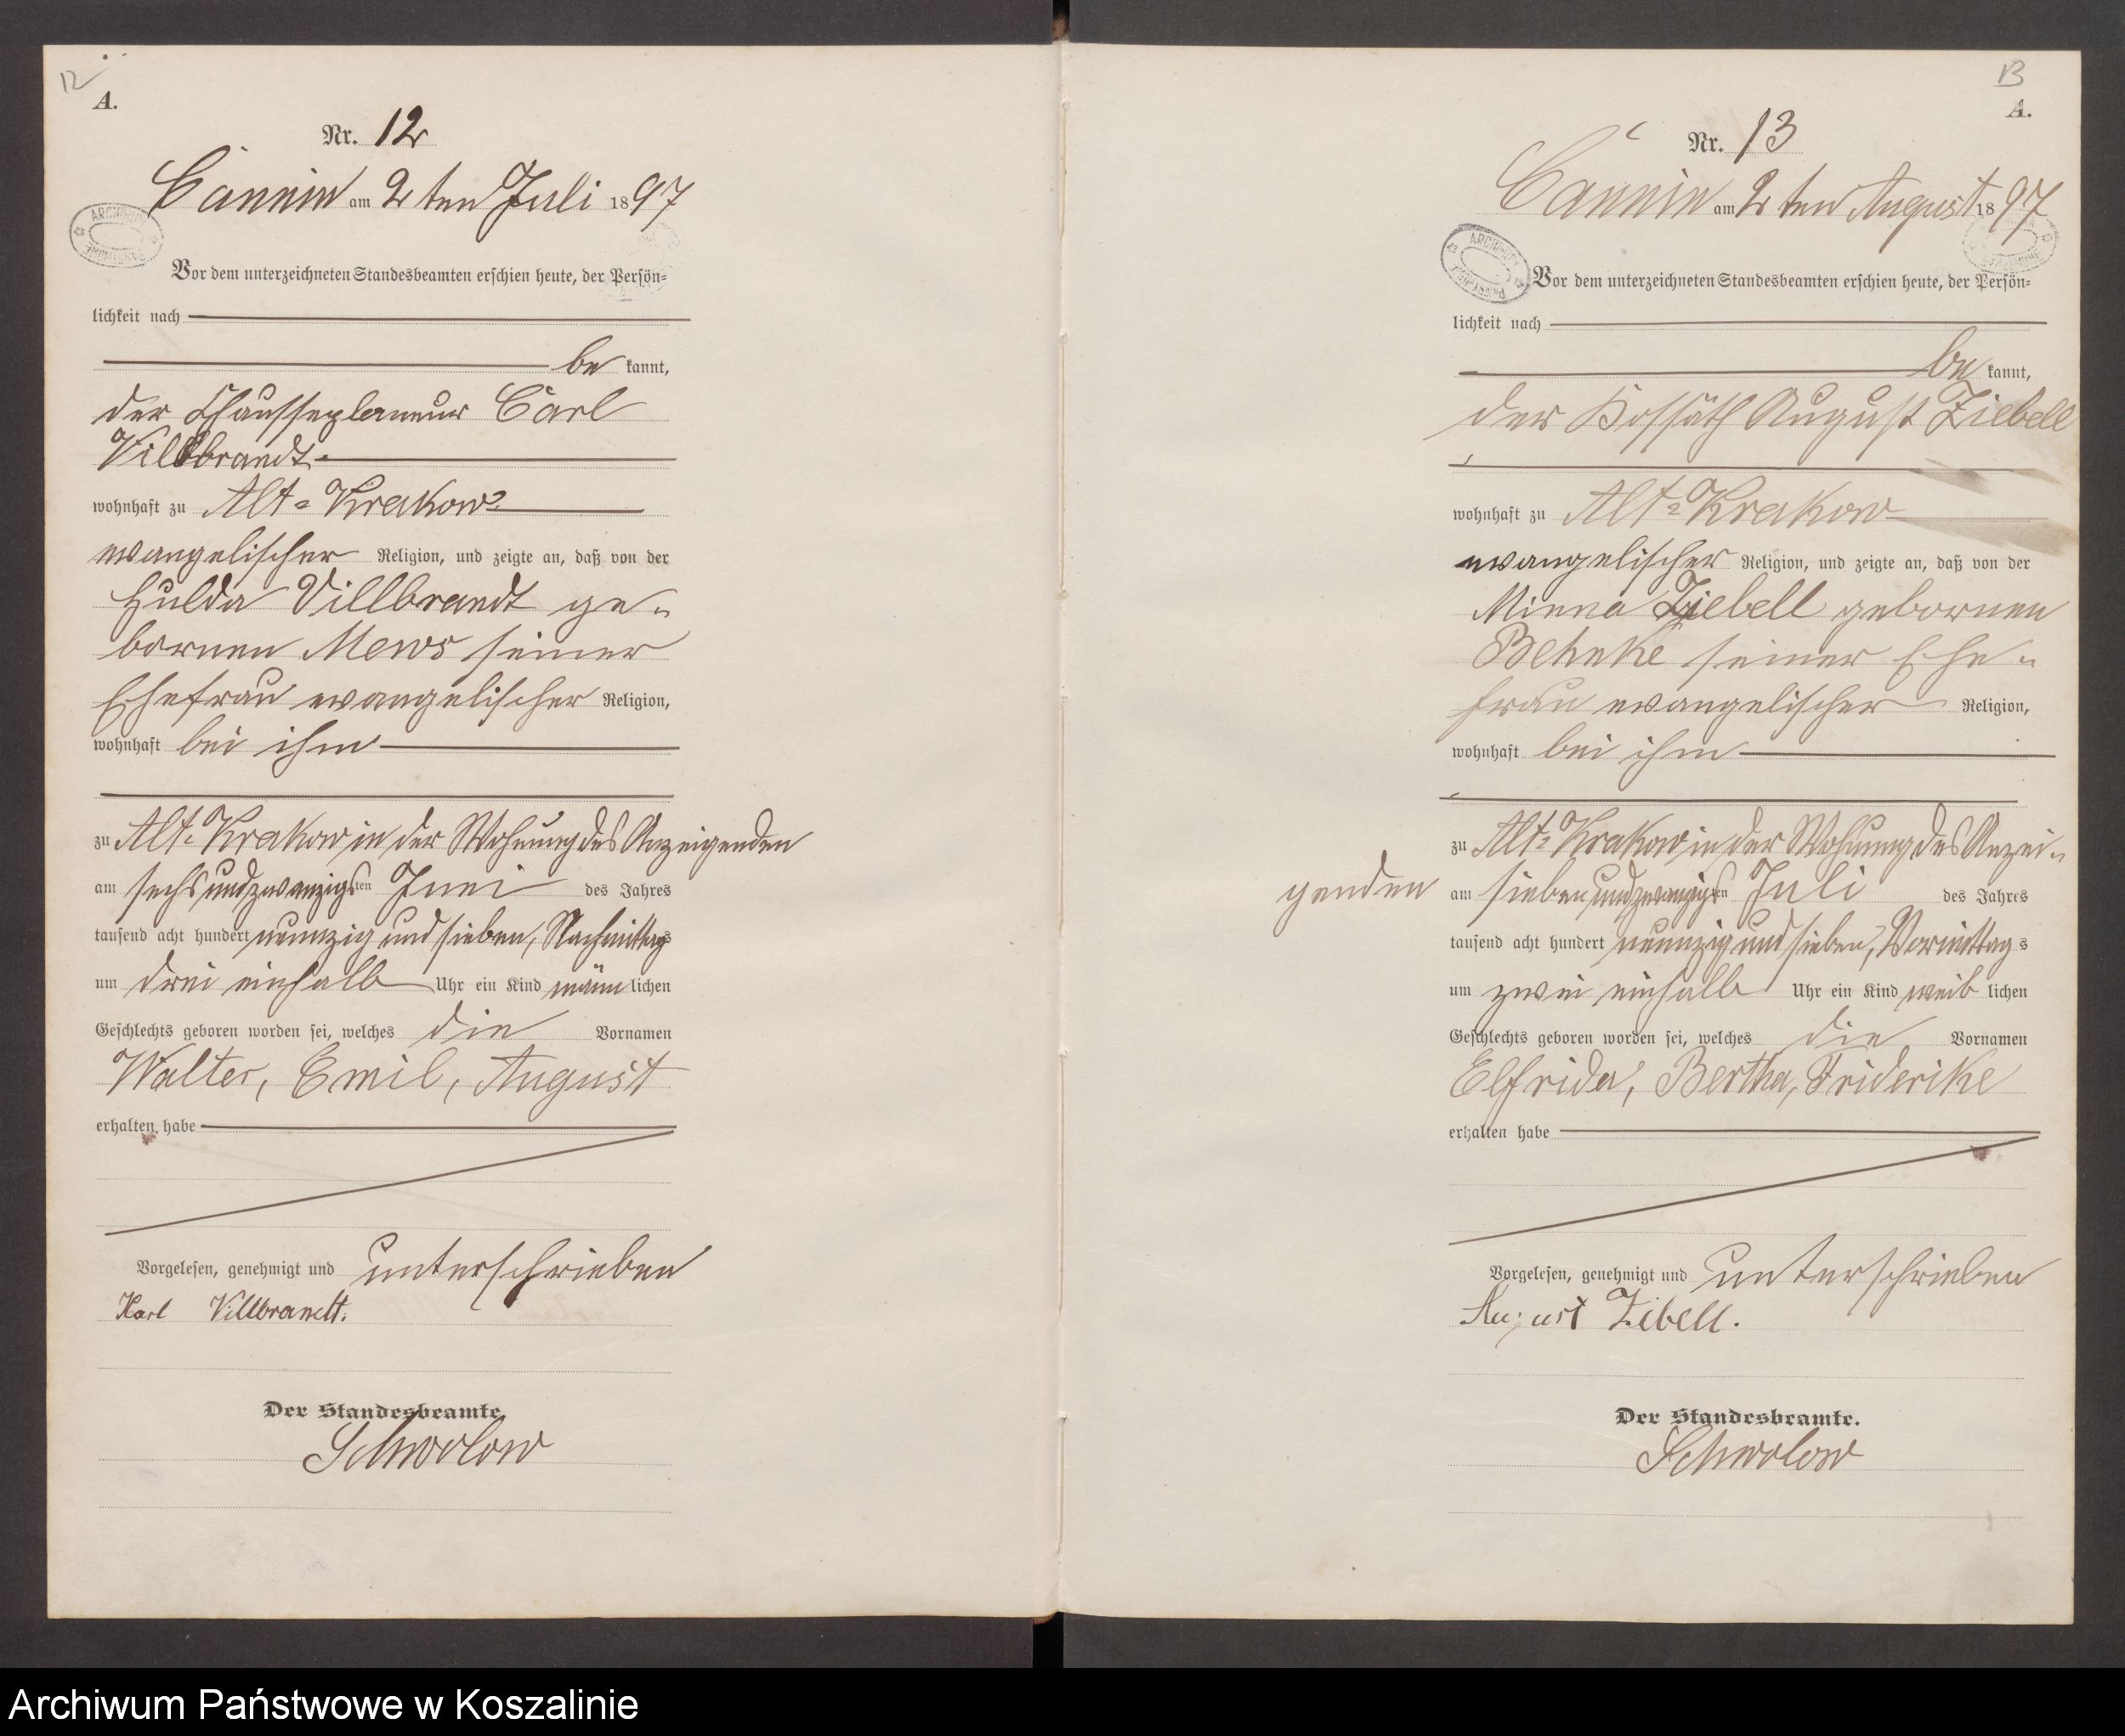 12
A.
Nr. 12
Cannin am 2ten Juli 1897
Vor dem unterzeichneten Standesbeamten erschien heute, der Persön=
lichkeit nach
be kannt,
der Chausseeplaneur Carl
Villbrandt
wohnhaft zu Alt=Krakow
evangelischer Religion, und zeigte an, daß von der
Hulda Villbrandt ge=
bornen Mews seiner
Ehefrau evangelischer Religion,
wohnhaft bei ihm
zu Alt=Krakow in der Wohnung des Anzeigenden
am sechsundzwanzigsten Juni des Jahres
tausend acht hundert neunzig und sieben, Nachmittags
um drei einhalb Uhr ein Kind männlichen
Geschlechts geboren worden sei, welches die Vornamen
Walter, Emil, August
erhalten habe
Vorgelesen, genehmigt und unterschrieben
Karl Villbrandt.
Der Standesbeamte
Schwolow
13
A.
Nr. 13
Cannin am 2ten August 1897
Vor dem unterzeichneten Standesbeamten erschien heute, der Persön=
lichkeit nach
be kannt,
der Kossäth August Ziebell
wohnhaft zu Alt=Krakow
evangelischer Religion, und zeigte an, daß von der
Minna Ziebell gebornen
Behnke seiner Ehe=
frau evangelischer Religion,
wohnhaft bei ihm
zu Alt=Krakow in der Wohnung des Anzei=
genden am siebenundzwanzigsten Juli des Jahres
tausend acht hundert neunzig und sieben, Vormittags
um zwei einhalb Uhr ein Kind weiblichen
Geschlechts geboren worden sei, welches die Vornamen
Elfrida, Bertha, Friderike
erhalten habe
Vorgelesen, genehmigt und unterschrieben
August Zibell.
Der Standesbeamte.
Schwolow
Archiwum Państwowe w Koszalinie